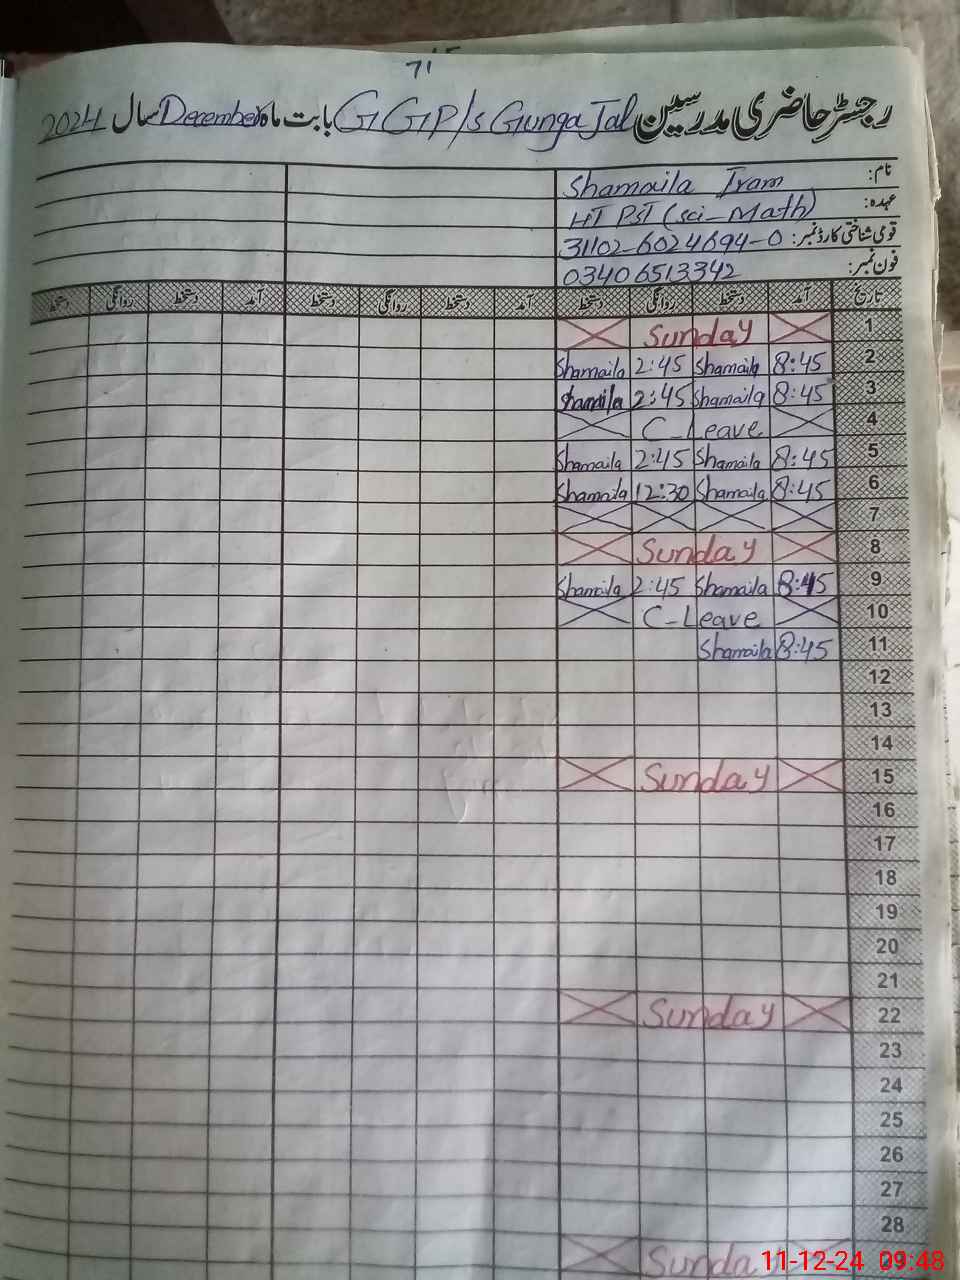 71
رجسٹر حاضری مدرسین GGP/s Gunga Jal بابت ماہ December سال 2024
نام: Shamaila Iram
عہدہ: HT PST (Sci-Math)
قومی شناختی کارڈ نمبر: 31102-6024694-0
فون نمبر: 03406513342
تاریخ آمد دستخط روانگی دستخط آمد دستخط روانگی دستخط آمد دستخط روانگی دستخط
1 Sunday
Shamaila 2:45 Shamaila 8:45 2
Shamaila 2:45 Shamaila 8:45 3
C-Leave 4
Shamaila 2:45 Shamaila 8:45 5
Shamaila 12:30 Shamaila 8:45 6
7
Sunday 8
Shamaila 2:45 Shamaila 8:45 9
C-Leave 10
Shamaila 8:45 11
12
13
14
Sunday 15
16
17
18
19
20
21
Sunday 22
23
24
25
26
27
28
Sunday
11-12-24 09:48